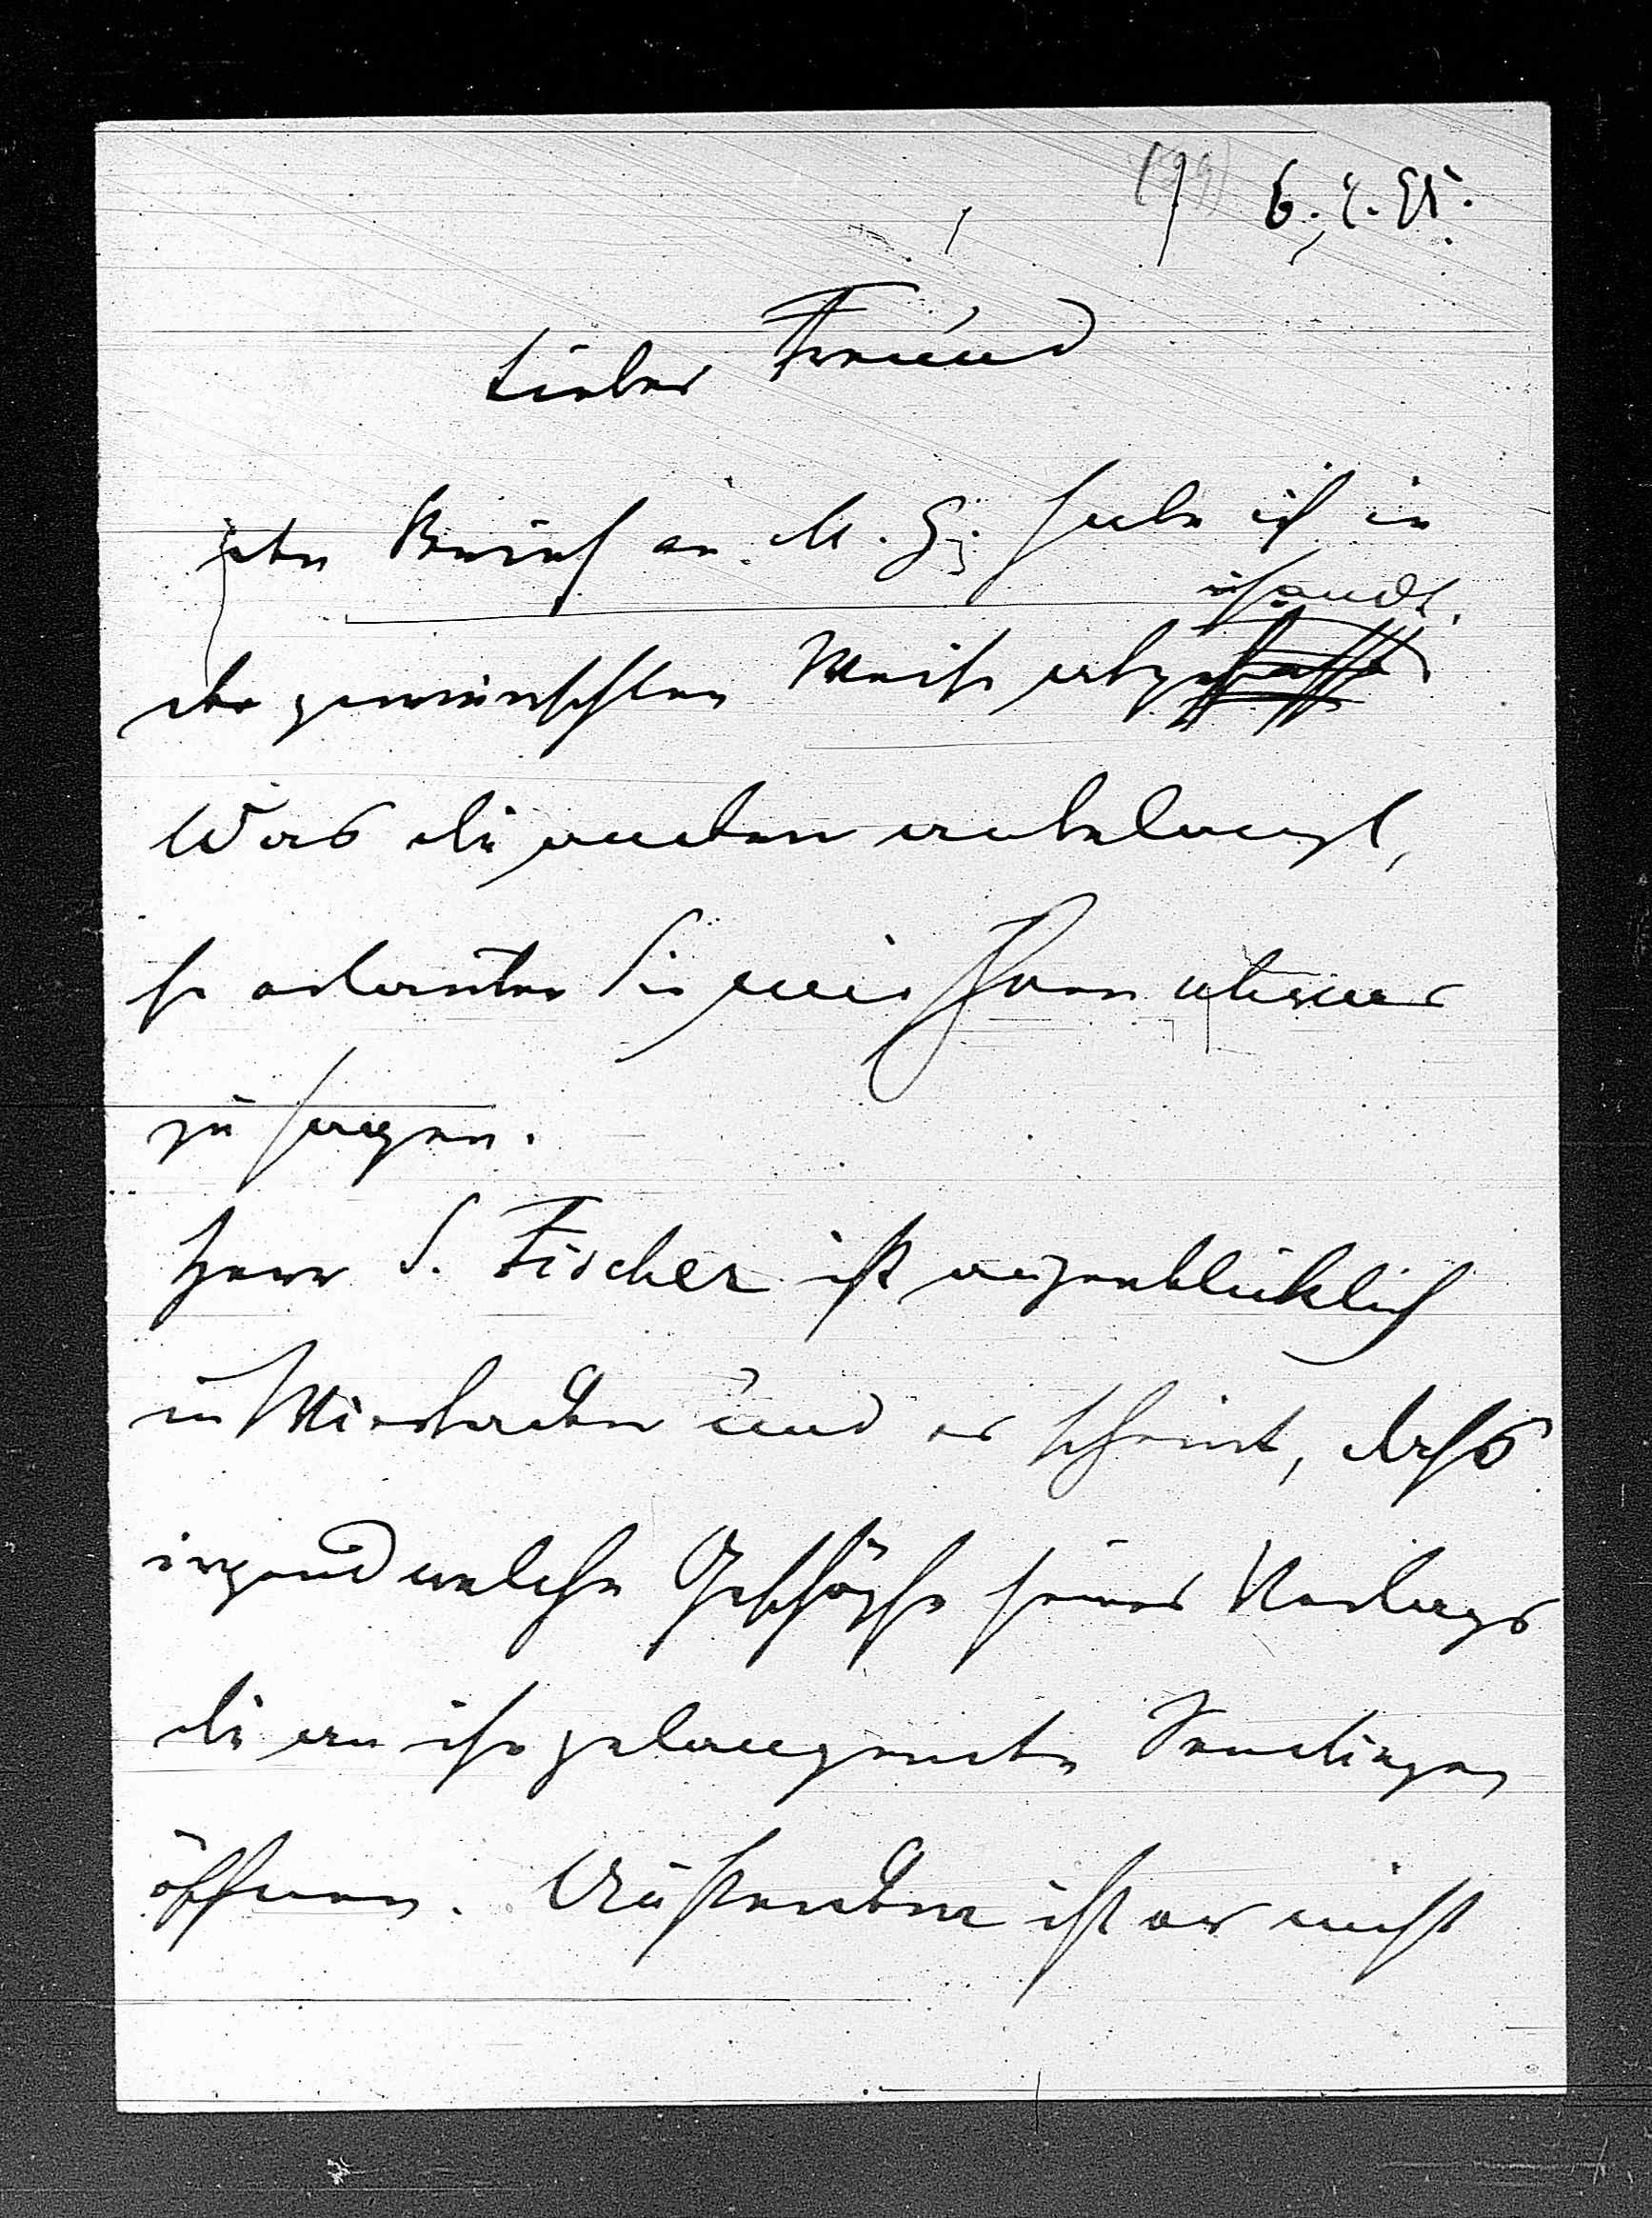 6. 2. 95.
Lieber Freund
den Brief an M. G. habe ich in
sandt.
der gewünschten Weise abge
Was die andern anbelangt,
so erlauben Sie mir Ihnen etwas
zu sagen.
Herr S. Fischer ist augenblicklich
in Wiesbaden und es scheint, dass
irgend welche Geschöpfe seines Verlags
die an ihn gelangenden Sendungen
öffnen. Außerdem ist er nicht